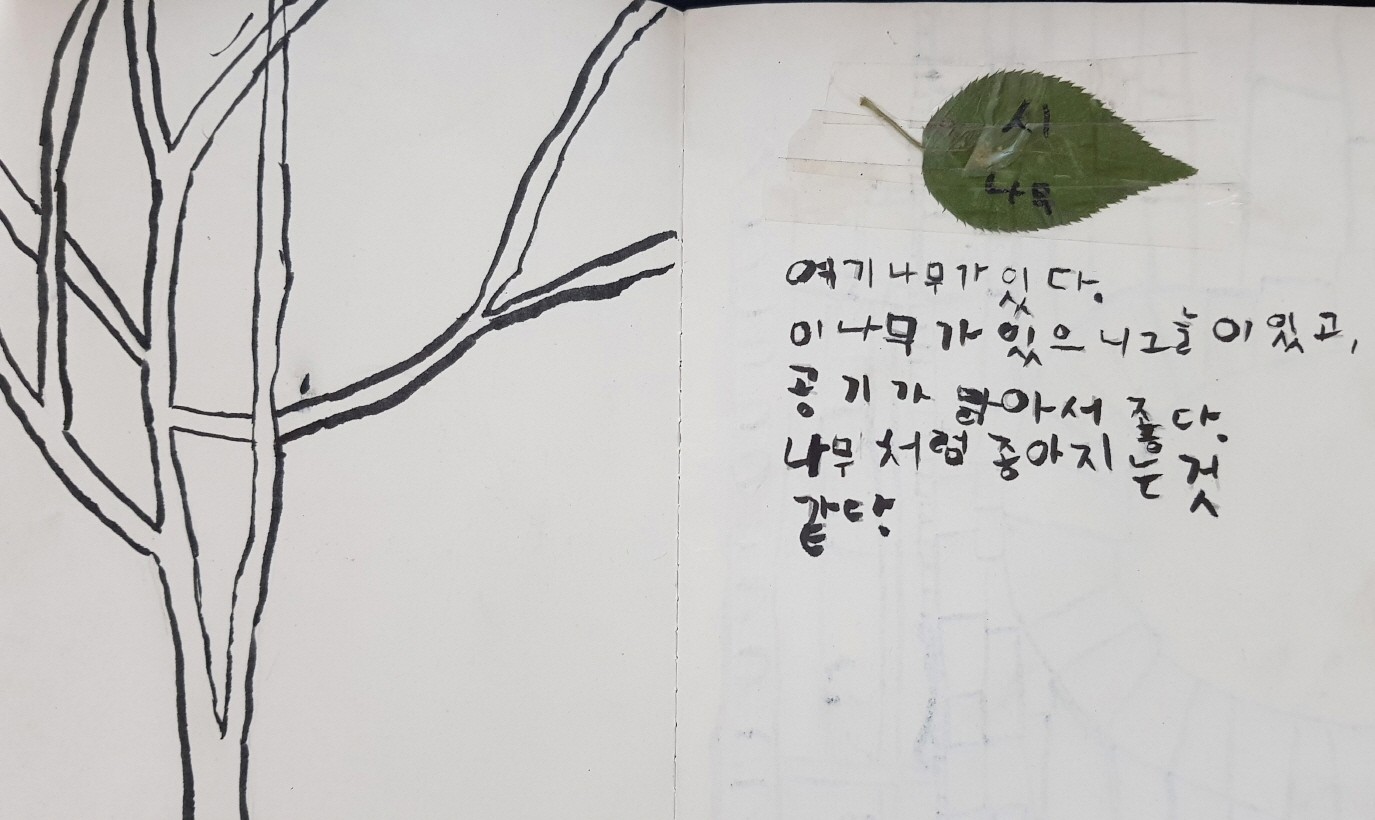 시
나무
여기 나무가 있다.
이 나무가 있으니 그늘이 있고,
공기가 맑아서 좋다.
나무처럼 좋아지는 것
같다.